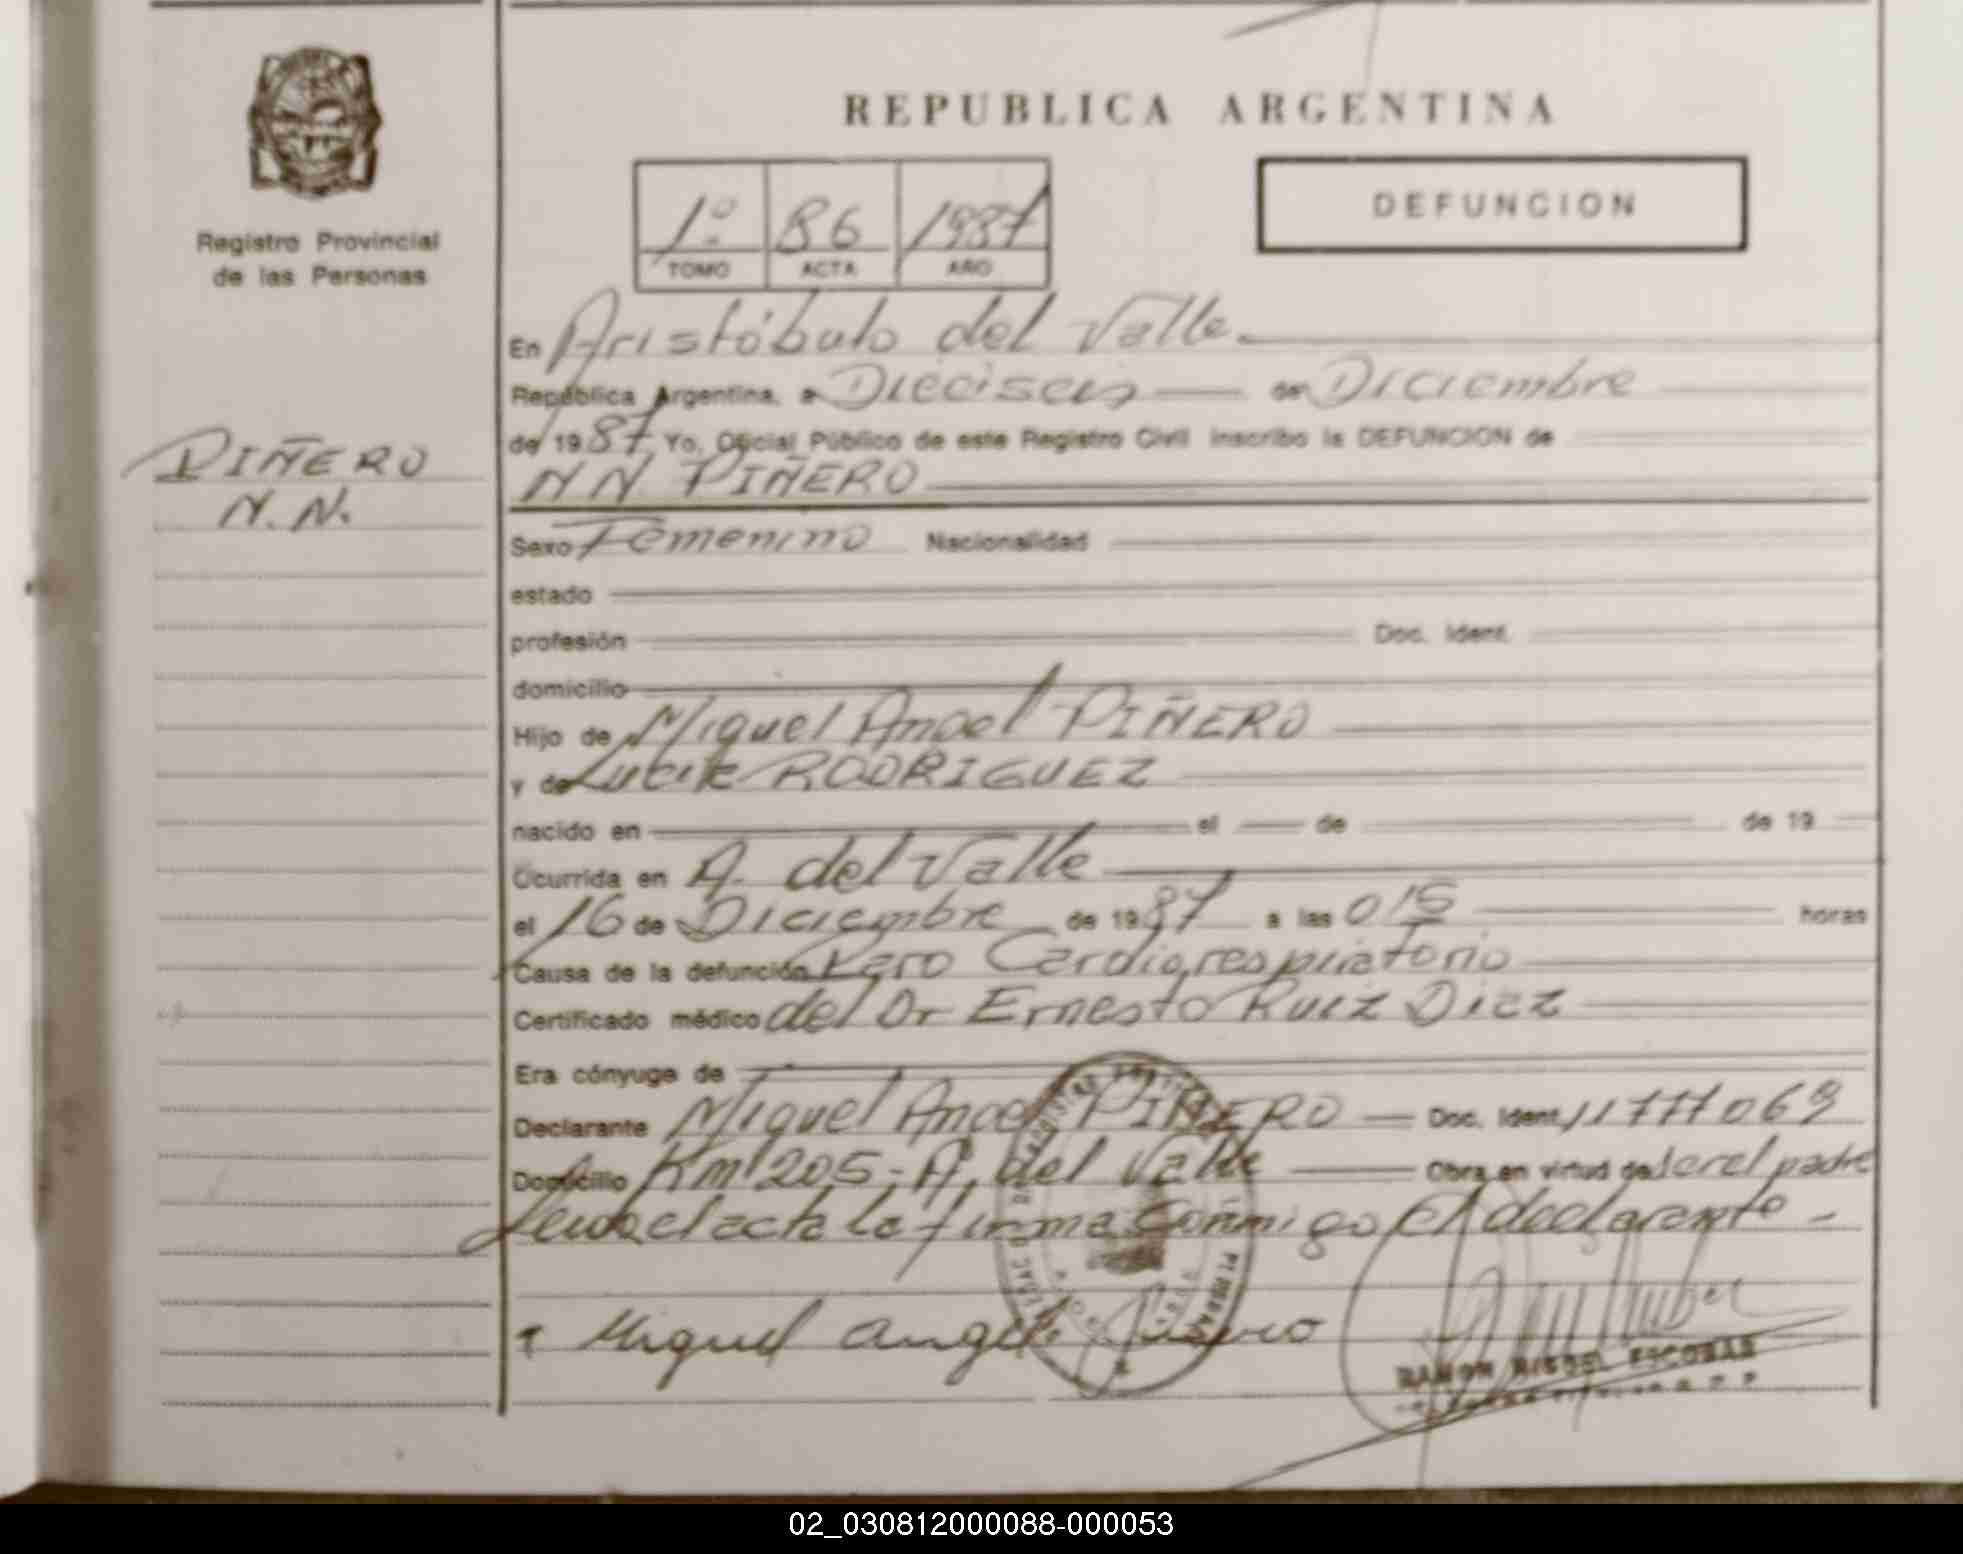 REPUBLICA ARGENTINA
Registro Provincial
de las Personas
1º 86 1987
TOMO ACTA AÑO
DEFUNCION
PIÑERO
N.N.
En Aristóbulo del Valle
República Argentina, a Dieciseis de Diciembre
de 1987 Yo, Oficial Público de este Registro Civil inscribo la DEFUNCION de
NN PIÑERO
Sexo Femenino Nacionalidad
estado
profesión Doc. Ident.
domicilio
Hijo de Miguel Angel PIÑERO
y de RODRIGUEZ
nacido en el de de 19
Ocurrida en A. del Valle
el 16 de Diciembre de 1987 a las 015 horas
Causa de la defunción Paro Cardiorespiratorio
Certificado médico del Dr Ernesto Ruiz Diaz
Era cónyuge de
Declarante Miguel Angel PIÑERO Doc. Ident. 11777069
Domicilio Km 205 - A. del Valle Obra en virtud de ser el padre
el acta la firma conmigo el declarante -
Miguel angel Piñero
RAMON MIGUEL ESCOBAR
02_030812000088-000053